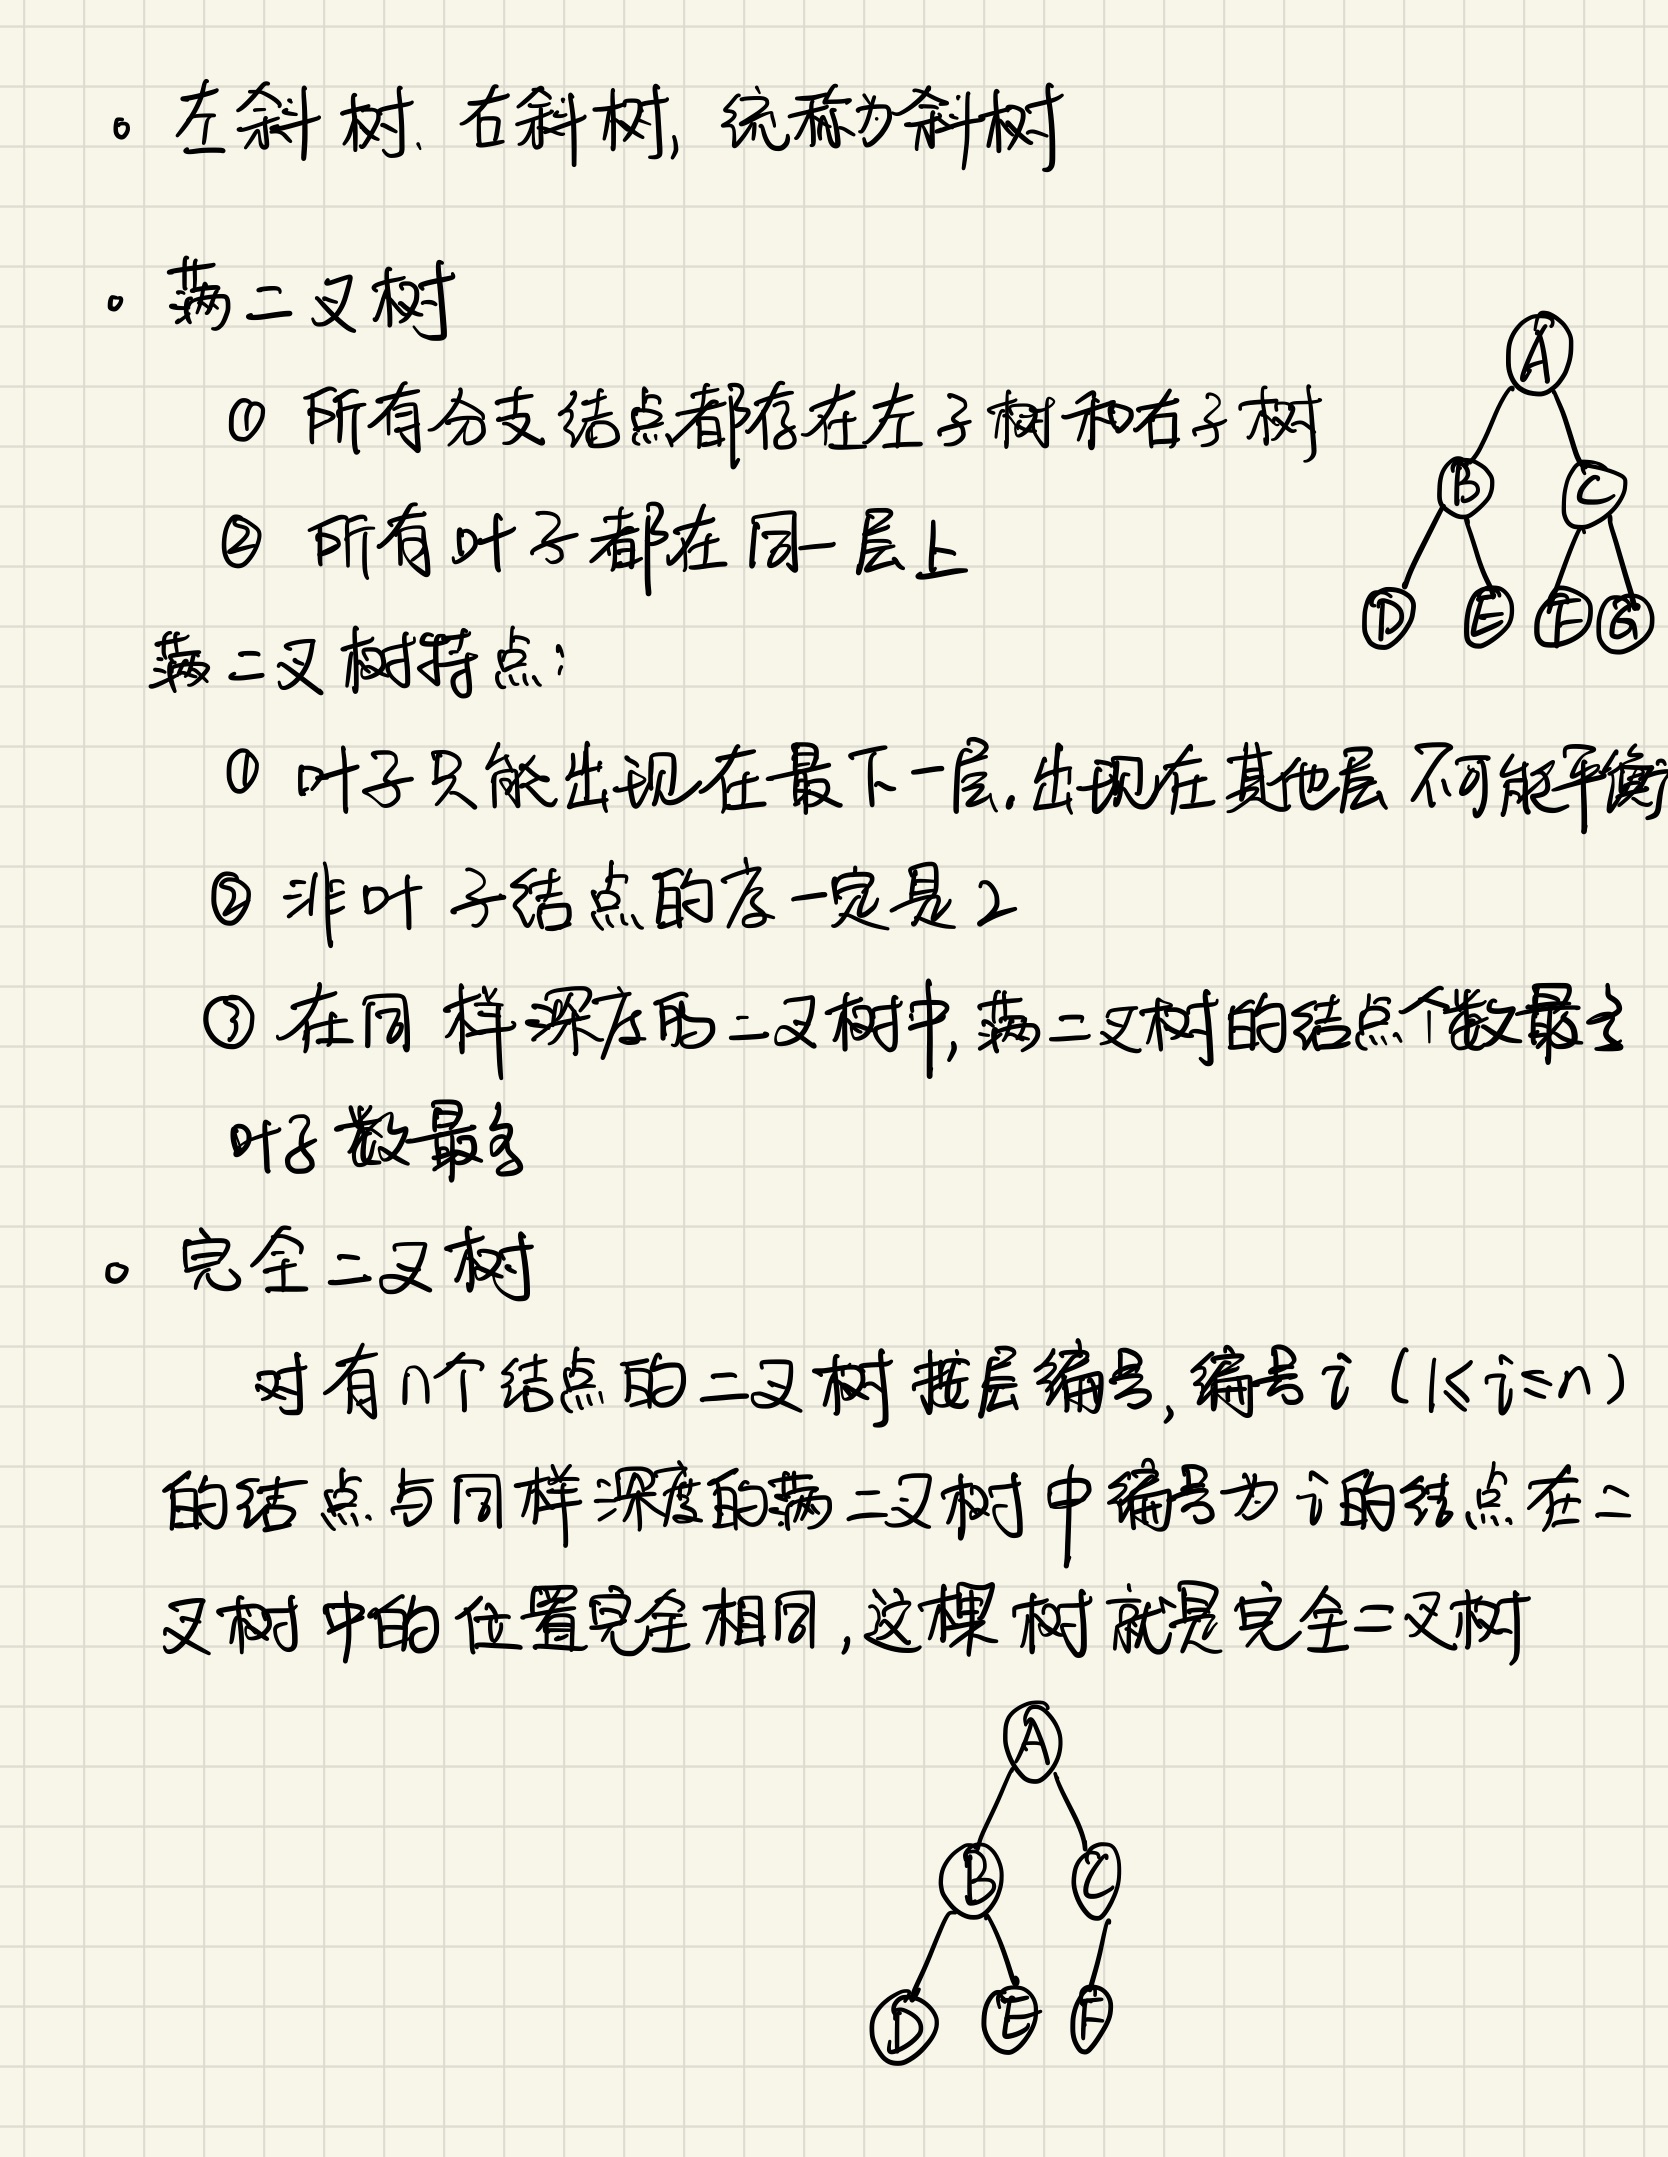 。左斜树、右斜树, 统称为斜树
。满二叉树
① 所有分支结点都存在左子树和右子树
② 所有叶子都在同一层上
满二叉树特点:
① 叶子只能出现在最下一层.出现在其他层不可能平衡
② 非叶子结点的度一定是2
③ 在同样深度的二叉树中,满二叉树的结点个数最多
叶子数最多
。完全二叉树
对有n个结点的二叉树按层编号,编号i (1≤i≤n)
的结点与同样深度的满二叉树中编号为i的结点在二
叉树中的位置完全相同,这棵树就是完全二叉树
A
B C
D E F G
A
B C
D E F